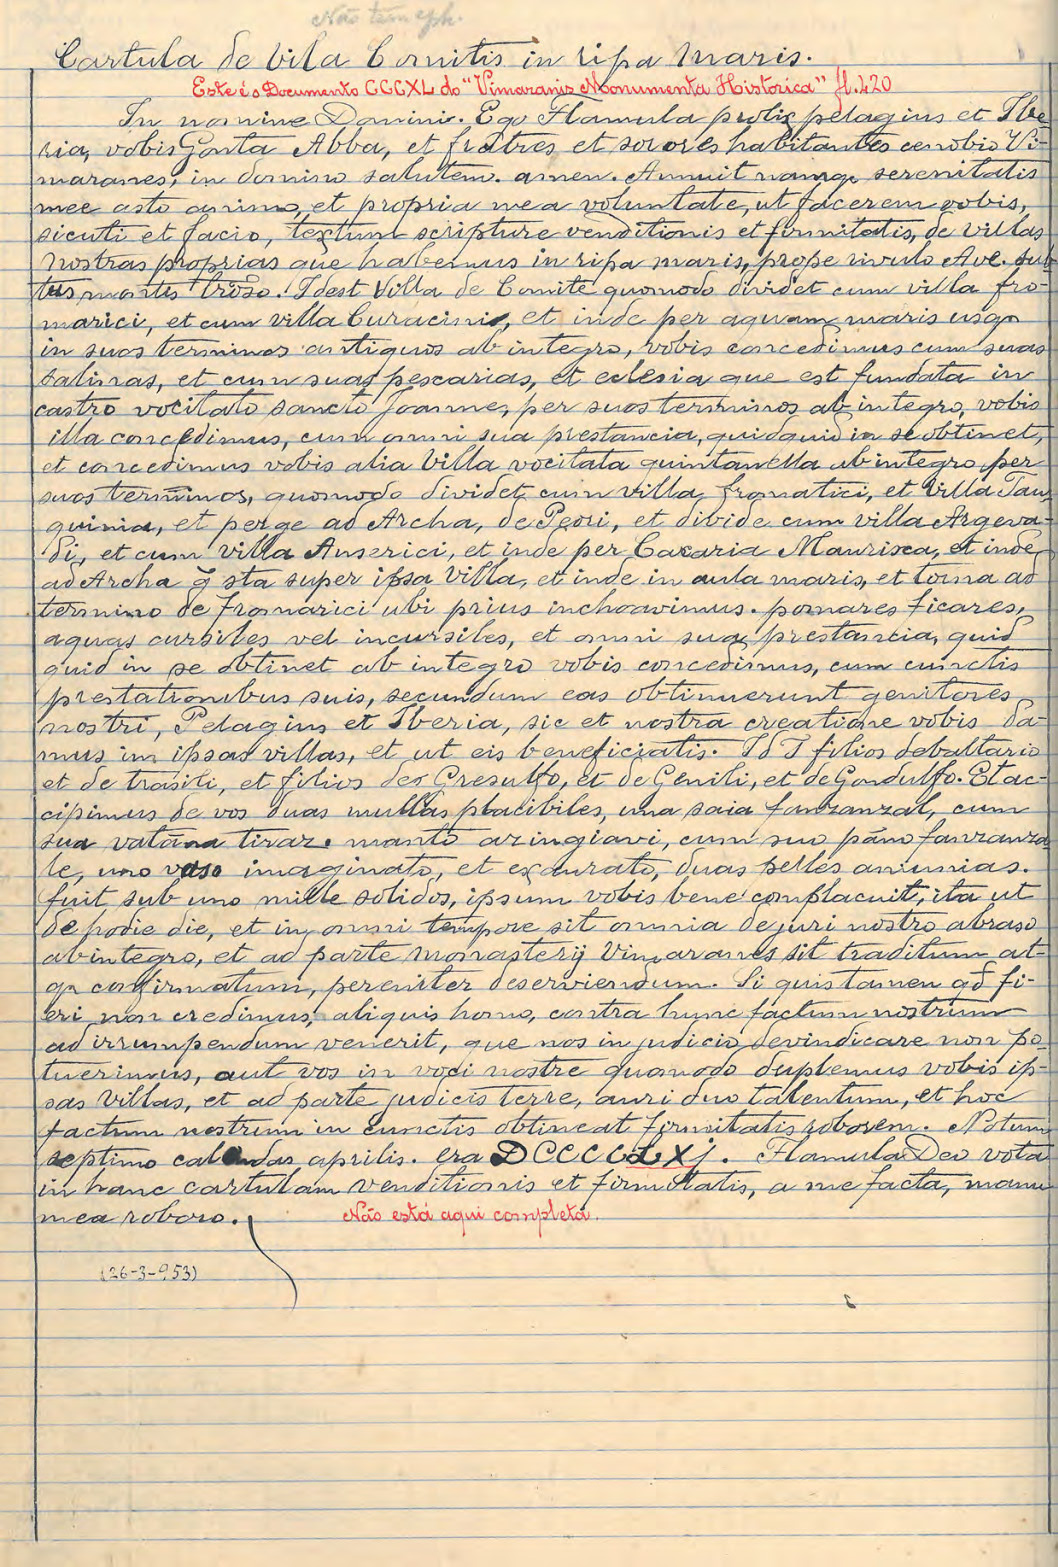 Não tem
Cartula de Vila Comitis in ripa maris.
Este é o Documento CCCXL do "Vimaranis Monumenta Historica" fl. 420
In nomine Domini. Ego Flamula prolis pelagius et Ibe
ria, vobis Gonta Abba, et fratres et sorores habitantes cenobio Vi-
maranes, in domino salutem. amen. Annuit namqe serenitatis
mee asto animo, et propria mea voluntate, ut facerem vobis,
sicuti et facio, textum scripture venditionis et firmitatis, de villas
nostras proprias que habemus in ripa maris, prope rivulo Ave. sub-
tus montis Troso. Idest Villa de Comite quomodo dividet cum villa fro-
marici, et cum villa Curacinis, et inde per aquam maris usqe
in suos terminos antiquos ab integro, vobis concedimus cum suas
salinas, et cum suas pescarias, et eclesia que est fundata in
castro vocitato sancto Joanne, per suos terminos ab integro, vobis
illa concedimus, cum omni sua prestancia, quidquid in se obtinet,
et concedimus vobis alia Villa vocitata quintanella ab integro per
suos terminos, quomodo dividet cum villa fromatici, et Villa Tau
quinia, et perge ad Archa, de Peori, et divide cum villa Argeva-
di, et cum villa Anserici, et inde per Cacaria Maurisca, et inde
ad Archa q̃ sta super ipsa Villa, et inde in aula maris, et torna ad
termino de fromarici ubi prius inchoavimus. pomares ficares,
aquas cursiles vel incursiles, et omni sua prestancia, quid
quid in se obtinet ab integro vobis concedimus, cum cunctis
prestationibus suis, secundum eas obtinuerunt genitores
nostri, Pelagius et Iberia, sic et nostra creatione vobis da-
mus in ipsas villas, et ut eis beneficiatis. Id T filios de baltario
et de trasili, et filios de Cresulfo, et de Genili, et de Gondulfo. Et ac-
cipimus de vos duas mullas placibiles, una saia fanzanzal, cum
sua vatãna tiraz. manto aringiavi, cum suo pãno fanzanza
le, uno vaso imaginato, et exaurato, duas pelles annunias.
fuit sub uno mille solidos, ipsum vobis bene complacuit, ita ut
de hodie die, et in omni tempore sit omnia de juri nostro abraso
ab integro, et ad parte monasterij Vimaranes sit traditum at-
qe confirmatum, pereniter deserviendum. Si quis tamen qđ fi-
eri non credimus, aliquis homo, contra hunc factum nostrum
ad irrumpendum venerit, que nos in judicio devindicare non po-
tuerimus, aut vos in voci nostre quomodo duplemus vobis ip-
sas villas, et ad parte judicis terre, auri duo talentum, et hoc
factum nostrum in cunctis obtineat firmitatis roborem. Notum
septimo calendas aprilis. era DCCCCLXXj. Flamula Deo vota
in hanc cartulam venditionis et firmitatis, a me facta, manu
mea roboro.
Não está aqui completa.
(26-3-953)